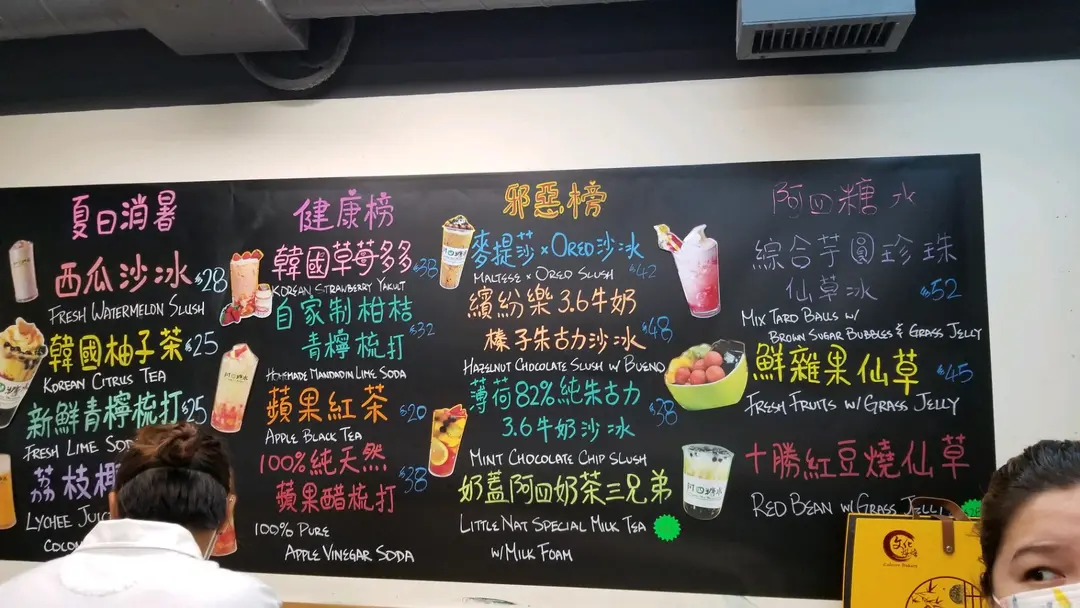 夏日消暑
西瓜沙冰 $28
FRESH WATERMELON SLUSH
韓國柚子茶 $25
KOREAN CITRUS TEA
新鮮青檸梳打 $25
FRESH LIME SODA
荔枝椰
LYCHEE JUIC
COCON
健康榜
韓國草莓多多 $38
KOREAN STRAWBERRY YAKULT
自家制柑桔
青檸梳打 $32
HOMEMADE MANDADIN LIME SODA
蘋果紅茶 $20
APPLE BLACK TEA
100%純天然
蘋果醋梳打 $38
100% PURE
APPLE VINEGAR SODA
邪惡榜
麥提莎×OREO沙冰 $42
MALTESE × OREO SLUSH
繽紛樂3.6牛奶
榛子朱古力沙冰 $48
HAZELNUT CHOCOLATE SLUSH W/ BUENO
薄荷82%純朱古力
3.6牛奶沙冰 $38
MINT CHOCOLATE CHIP SLUSH
奶蓋阿四奶茶三兄弟
LITTLE NAT SPECIAL MILK TEA
W/ MILK FOAM
阿四糖水
綜合芋圓珍珠
仙草冰 $52
MIX TARO BALLS W/
BROWN SUGAR BUBBLES & GRASS JELLY
鮮雜果仙草 $45
FRESH FRUITS W/ GRASS JELLY
十勝紅豆燒仙草
RED BEAN W/ GRASS JELLY
阿四糖水